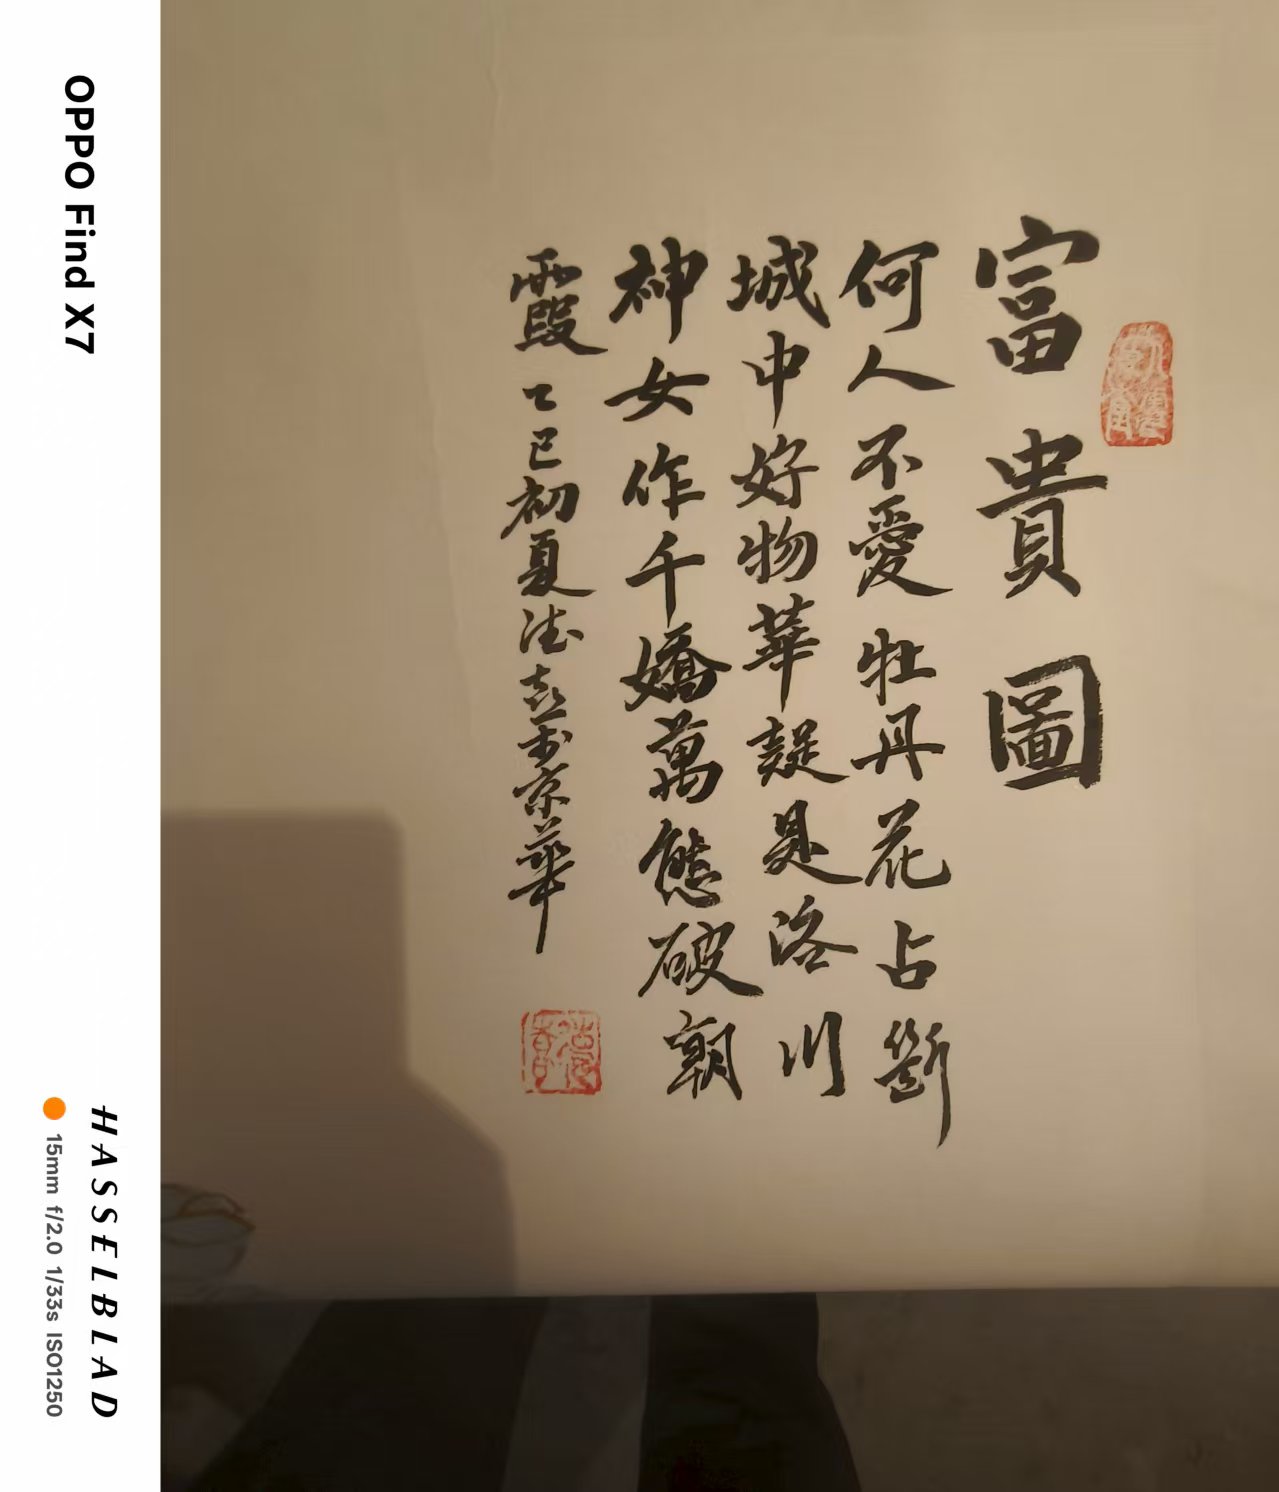 富貴圖
何人不愛牡丹花占斷
城中好物華疑是洛川
神女作千嬌萬態破朝
霞乙巳初夏德喜於京華
OPPO Find X7
HASSELBLAD
15mm f/2.0 1/33s ISO1250